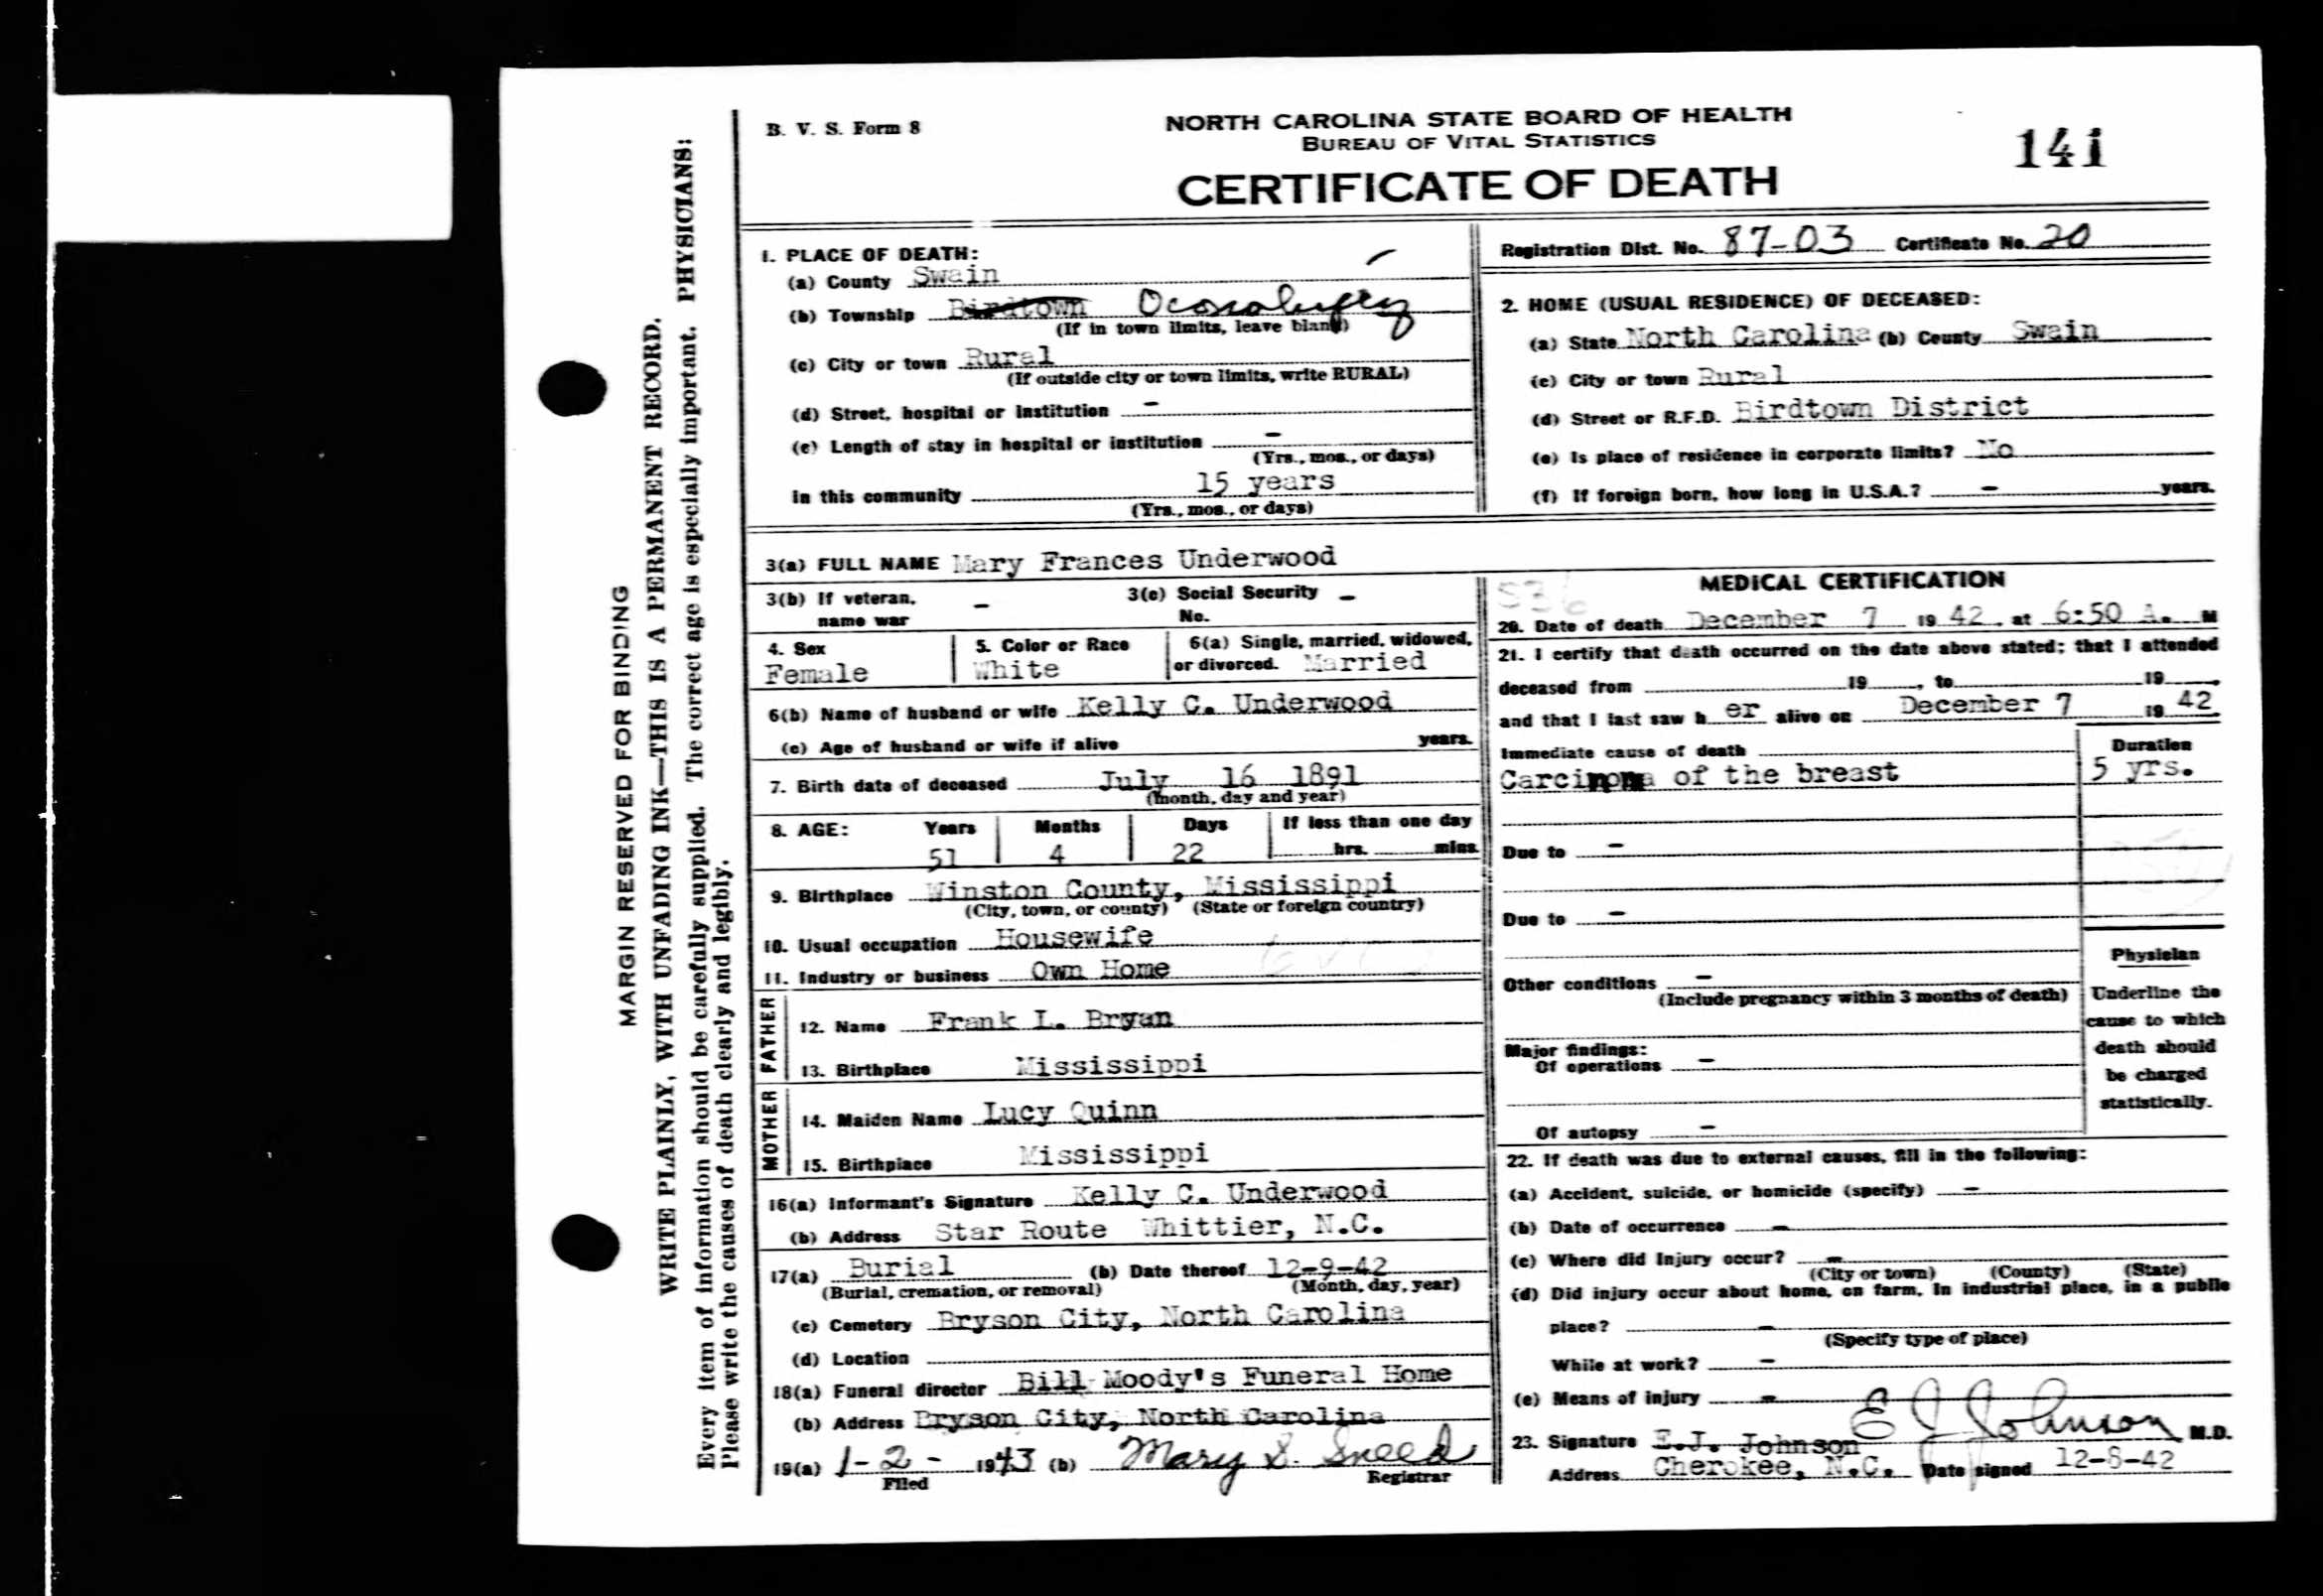 B. V. S. Form 8
NORTH CAROLINA STATE BOARD OF HEALTH
BUREAU OF VITAL STATISTICS
CERTIFICATE OF DEATH
141
MARGIN RESERVED FOR BINDING
WRITE PLAINLY, WITH UNFADING INK—THIS IS A PERMANENT RECORD.
Every item of information should be carefully supplied. The correct age is especially important. PHYSICIANS:
Please write the causes of death clearly and legibly.
Registration Dist. No. 87-03 Certificate No. 20
1. PLACE OF DEATH:
(a) County Swain
(b) Township Birdtown
(If in town limits, leave blank)
(c) City or town Rural
(If outside city or town limits, write RURAL)
(d) Street, hospital or institution -
(e) Length of stay in hospital or institution -
(Yrs., mos., or days)
in this community 15 years
(Yrs., mos., or days)
2. HOME (USUAL RESIDENCE) OF DECEASED:
(a) State North Carolina (b) County Swain
(c) City or town Rural
(d) Street or R.F.D. Birdtown District
(e) Is place of residence in corporate limits? No
(f) If foreign born, how long in U.S.A.? - years.
3(a) FULL NAME Mary Frances Underwood
3(b) If veteran, name war -
3(c) Social Security No. -
4. Sex Female
5. Color or Race White
6(a) Single, married, widowed, or divorced. Married
6(b) Name of husband or wife Kelly C. Underwood
(c) Age of husband or wife if alive years.
7. Birth date of deceased July 16 1891
(month, day and year)
8. AGE: Years Months Days If less than one day
51 4 22 hrs. mins.
9. Birthplace Winston County, Mississippi
(City, town, or county) (State or foreign country)
10. Usual occupation Housewife
11. Industry or business Own Home
FATHER
12. Name Frank L. Bryan
13. Birthplace Mississippi
MOTHER
14. Maiden Name Lucy Quinn
15. Birthplace Mississippi
16(a) Informant's Signature Kelly C. Underwood
(b) Address Star Route Whittier, N.C.
17(a) Burial (b) Date thereof 12-9-42
(Burial, cremation, or removal) (Month, day, year)
(c) Cemetery Bryson City, North Carolina
(d) Location
18(a) Funeral director Bill Moody's Funeral Home
(b) Address Bryson City, North Carolina
19(a) 1-2- 1943 (b) Mary S. Sneed
Filed Registrar
MEDICAL CERTIFICATION
20. Date of death December 7 19 42, at 6:50 A. M
21. I certify that death occurred on the date above stated; that I attended
deceased from 19 , to 19 ,
and that I last saw h er alive on December 7 19 42
Immediate cause of death Duration
Carcinoma of the breast 5 yrs.
Due to -
Due to -
Other conditions -
(Include pregnancy within 3 months of death)
Major findings:
Of operations -
Of autopsy -
Physician
Underline the
cause to which
death should
be charged
statistically.
22. If death was due to external causes, fill in the following:
(a) Accident, suicide, or homicide (specify) -
(b) Date of occurrence -
(c) Where did injury occur? -
(City or town) (County) (State)
(d) Did injury occur about home, on farm, in industrial place, in a public
place? -
(Specify type of place)
While at work? -
(e) Means of injury -
E J Johnson
23. Signature E.J. Johnson M.D.
Address Cherokee, N.C. Date signed 12-8-42